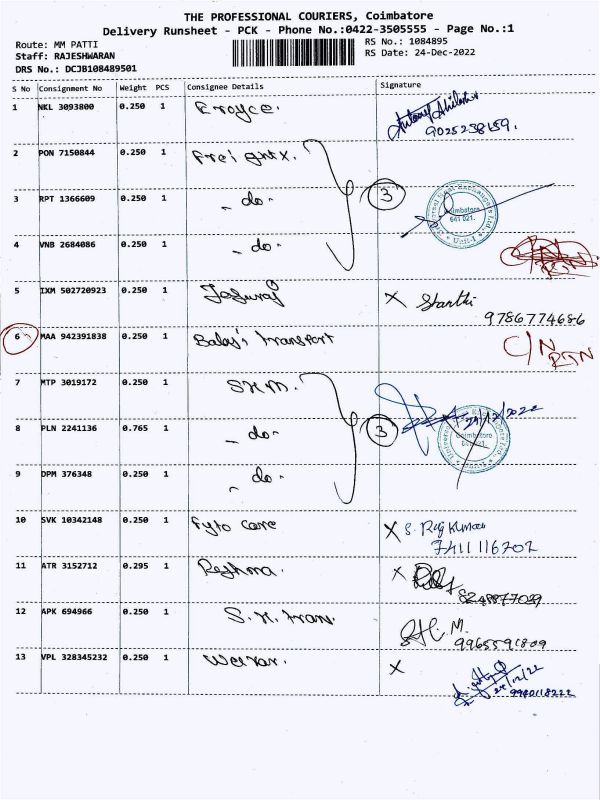 THE PROFESSIONAL COURIERS, Coimbatore
Delivery Runsheet - PCK - Phone No.:0422-3505555 - Page No.:1
Route: MM PATTI
RS No.: 1084895
Staff: RAJESHWARAN
RS Date: 24-Dec-2022
DRS No.: DCJB108489501
S No Consignment No Weight PCS Consignee Details Signature
1 NKL 3093800 0.250 1
9025238159.
2 PON 7150844 0.250 1
3 RPT 1366609 0.250 1 - do - 3
Coimbatore
641 021.
Unit-I
4 VNB 2684086 0.250 1 - do -
RTN
5 IXM 502720923 0.250 1 X
9786774686
6 MAA 942391838 0.250 1 Balaji Transport C/N
RTN
7 MTP 3019172 0.250 1 S.K.M.
24/12/2022
8 PLN 2241136 0.765 1 - do - 3
Coimbatore
641 021.
9 DPM 376348 0.250 1 - do -
10 SVK 10342148 0.250 1 Fyto care X S. Raj Kumar
7411116202
11 ATR 3152712 0.295 1 Reshma. X
8248877039
12 APK 694966 0.250 1
9965591809
13 VPL 328345232 0.250 1 X
24/12/22